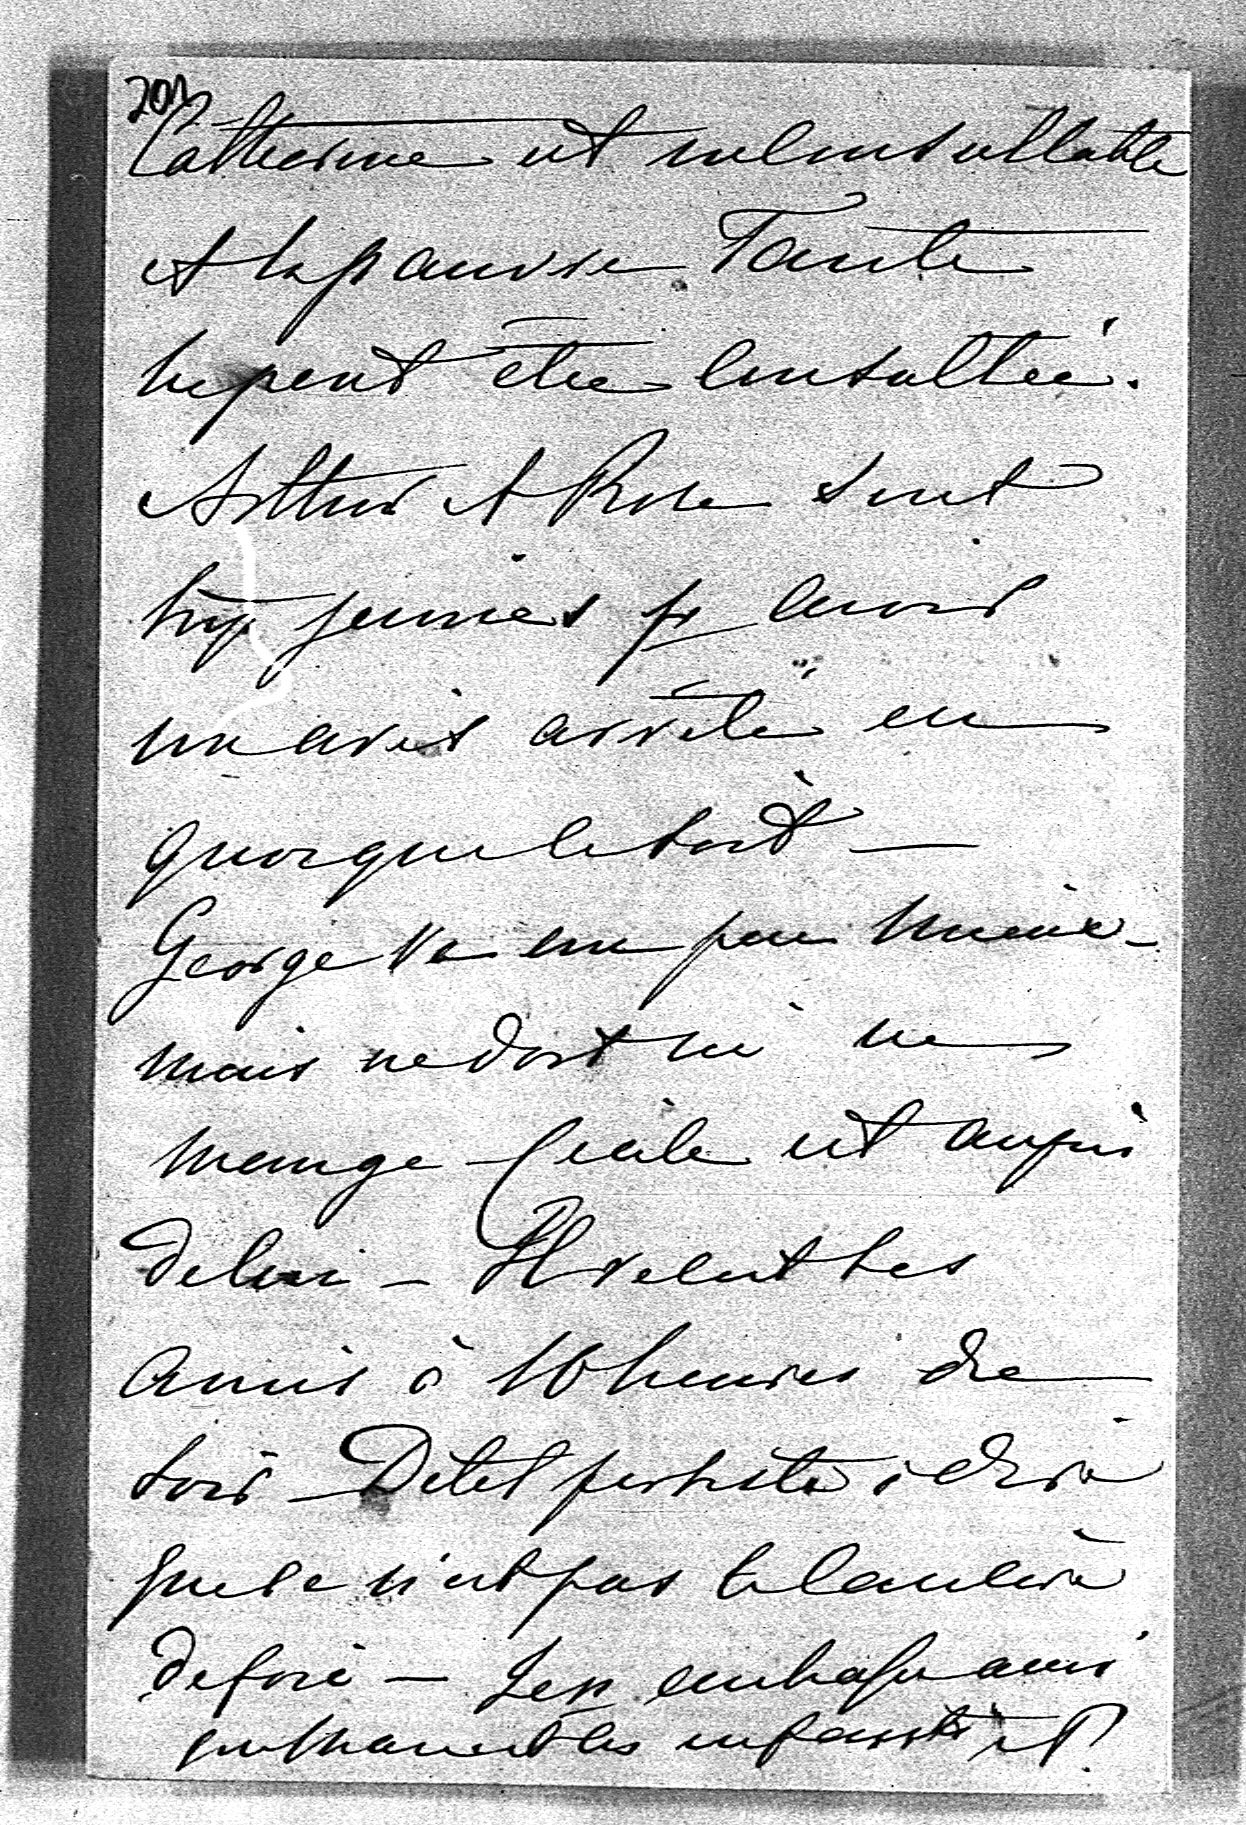 201
Catherine est inconsultable
et la pauvre Tante
ne peut être consultée.
Arthur et Rose sont
trop jeunes pr avoir
un avis arrêté en
quoique ce soit —
George va un peu mieux -
mais ne dort ni ne
mange - Cécile est auprès
de lui - Il veut ses
amis à 10 heures du
soir - Dites
que ce n'est pas le cancer
de foie - Je embrasse ainsi
que Maman et les enfants